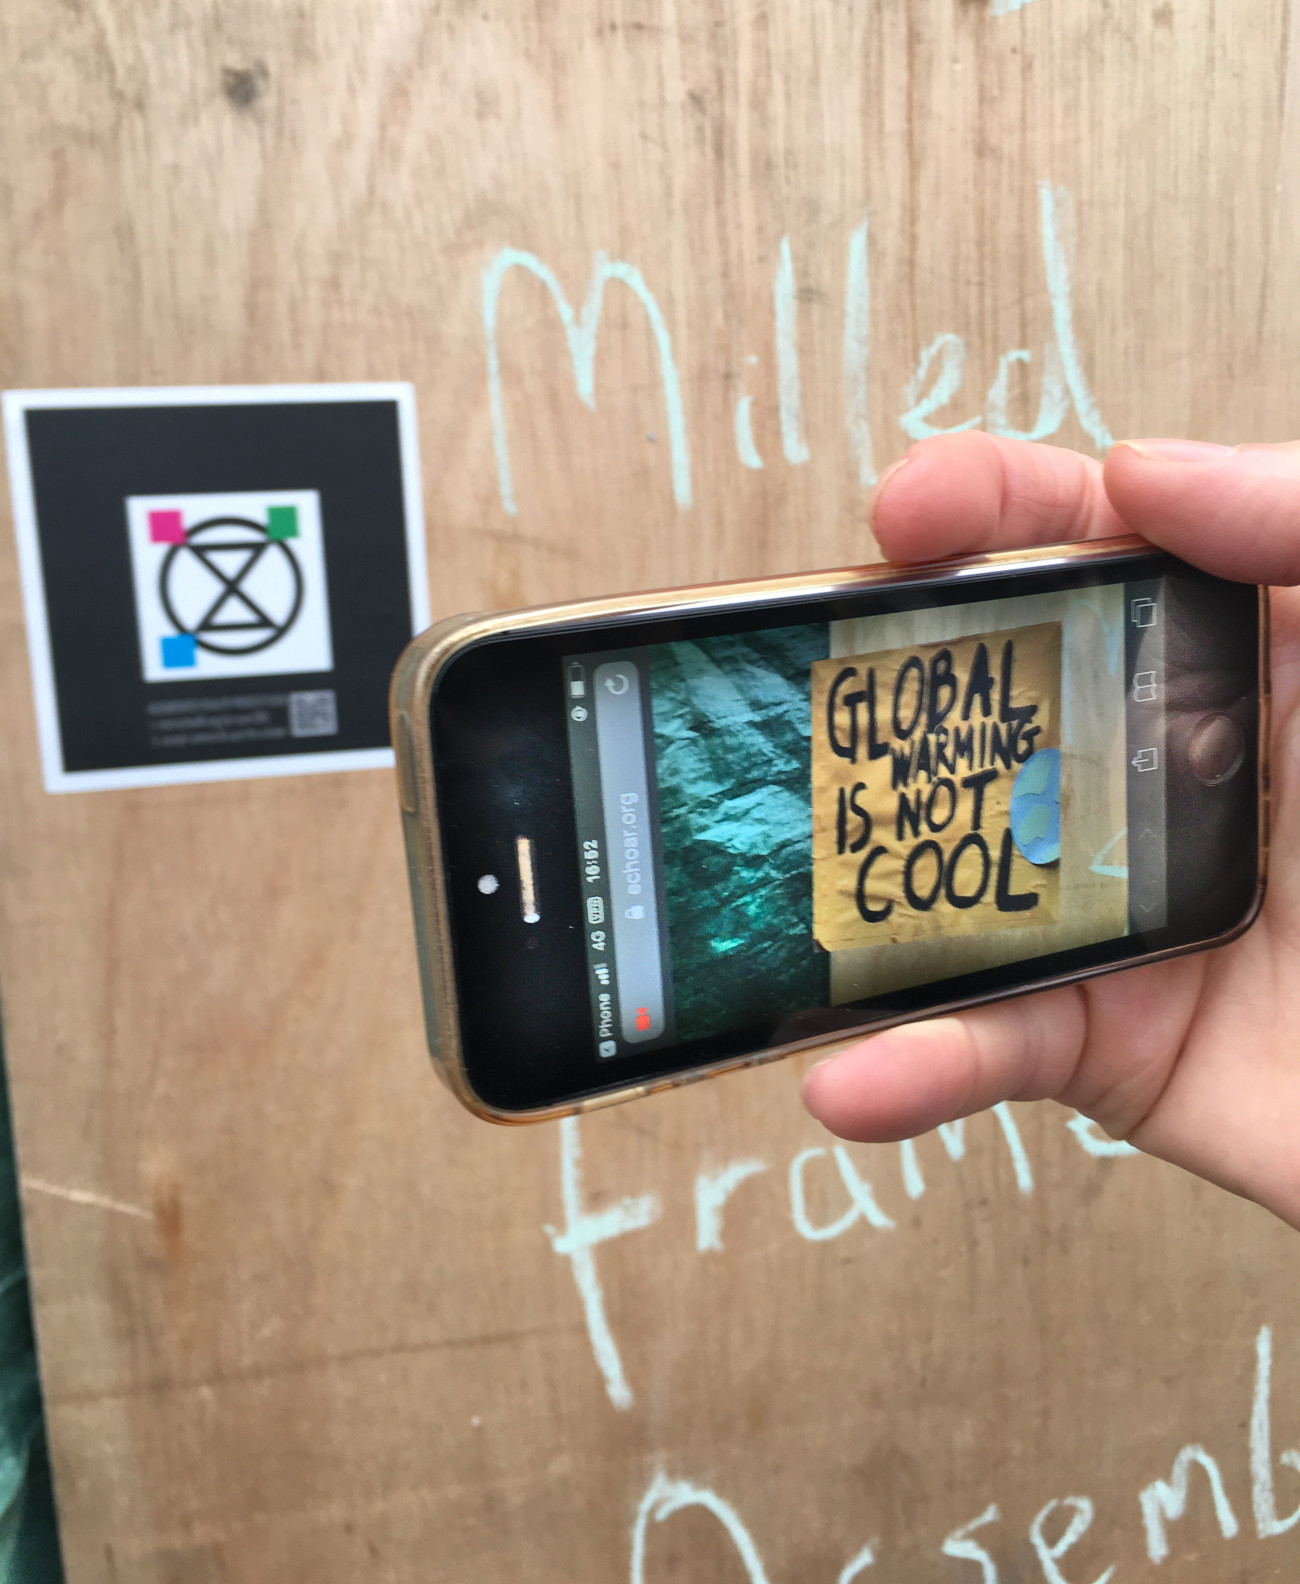 Milled
Phone
4G
VPN
16:52
echoar.org
GLOBAL
WARMING
IS NOT
COOL
frame
Assemb